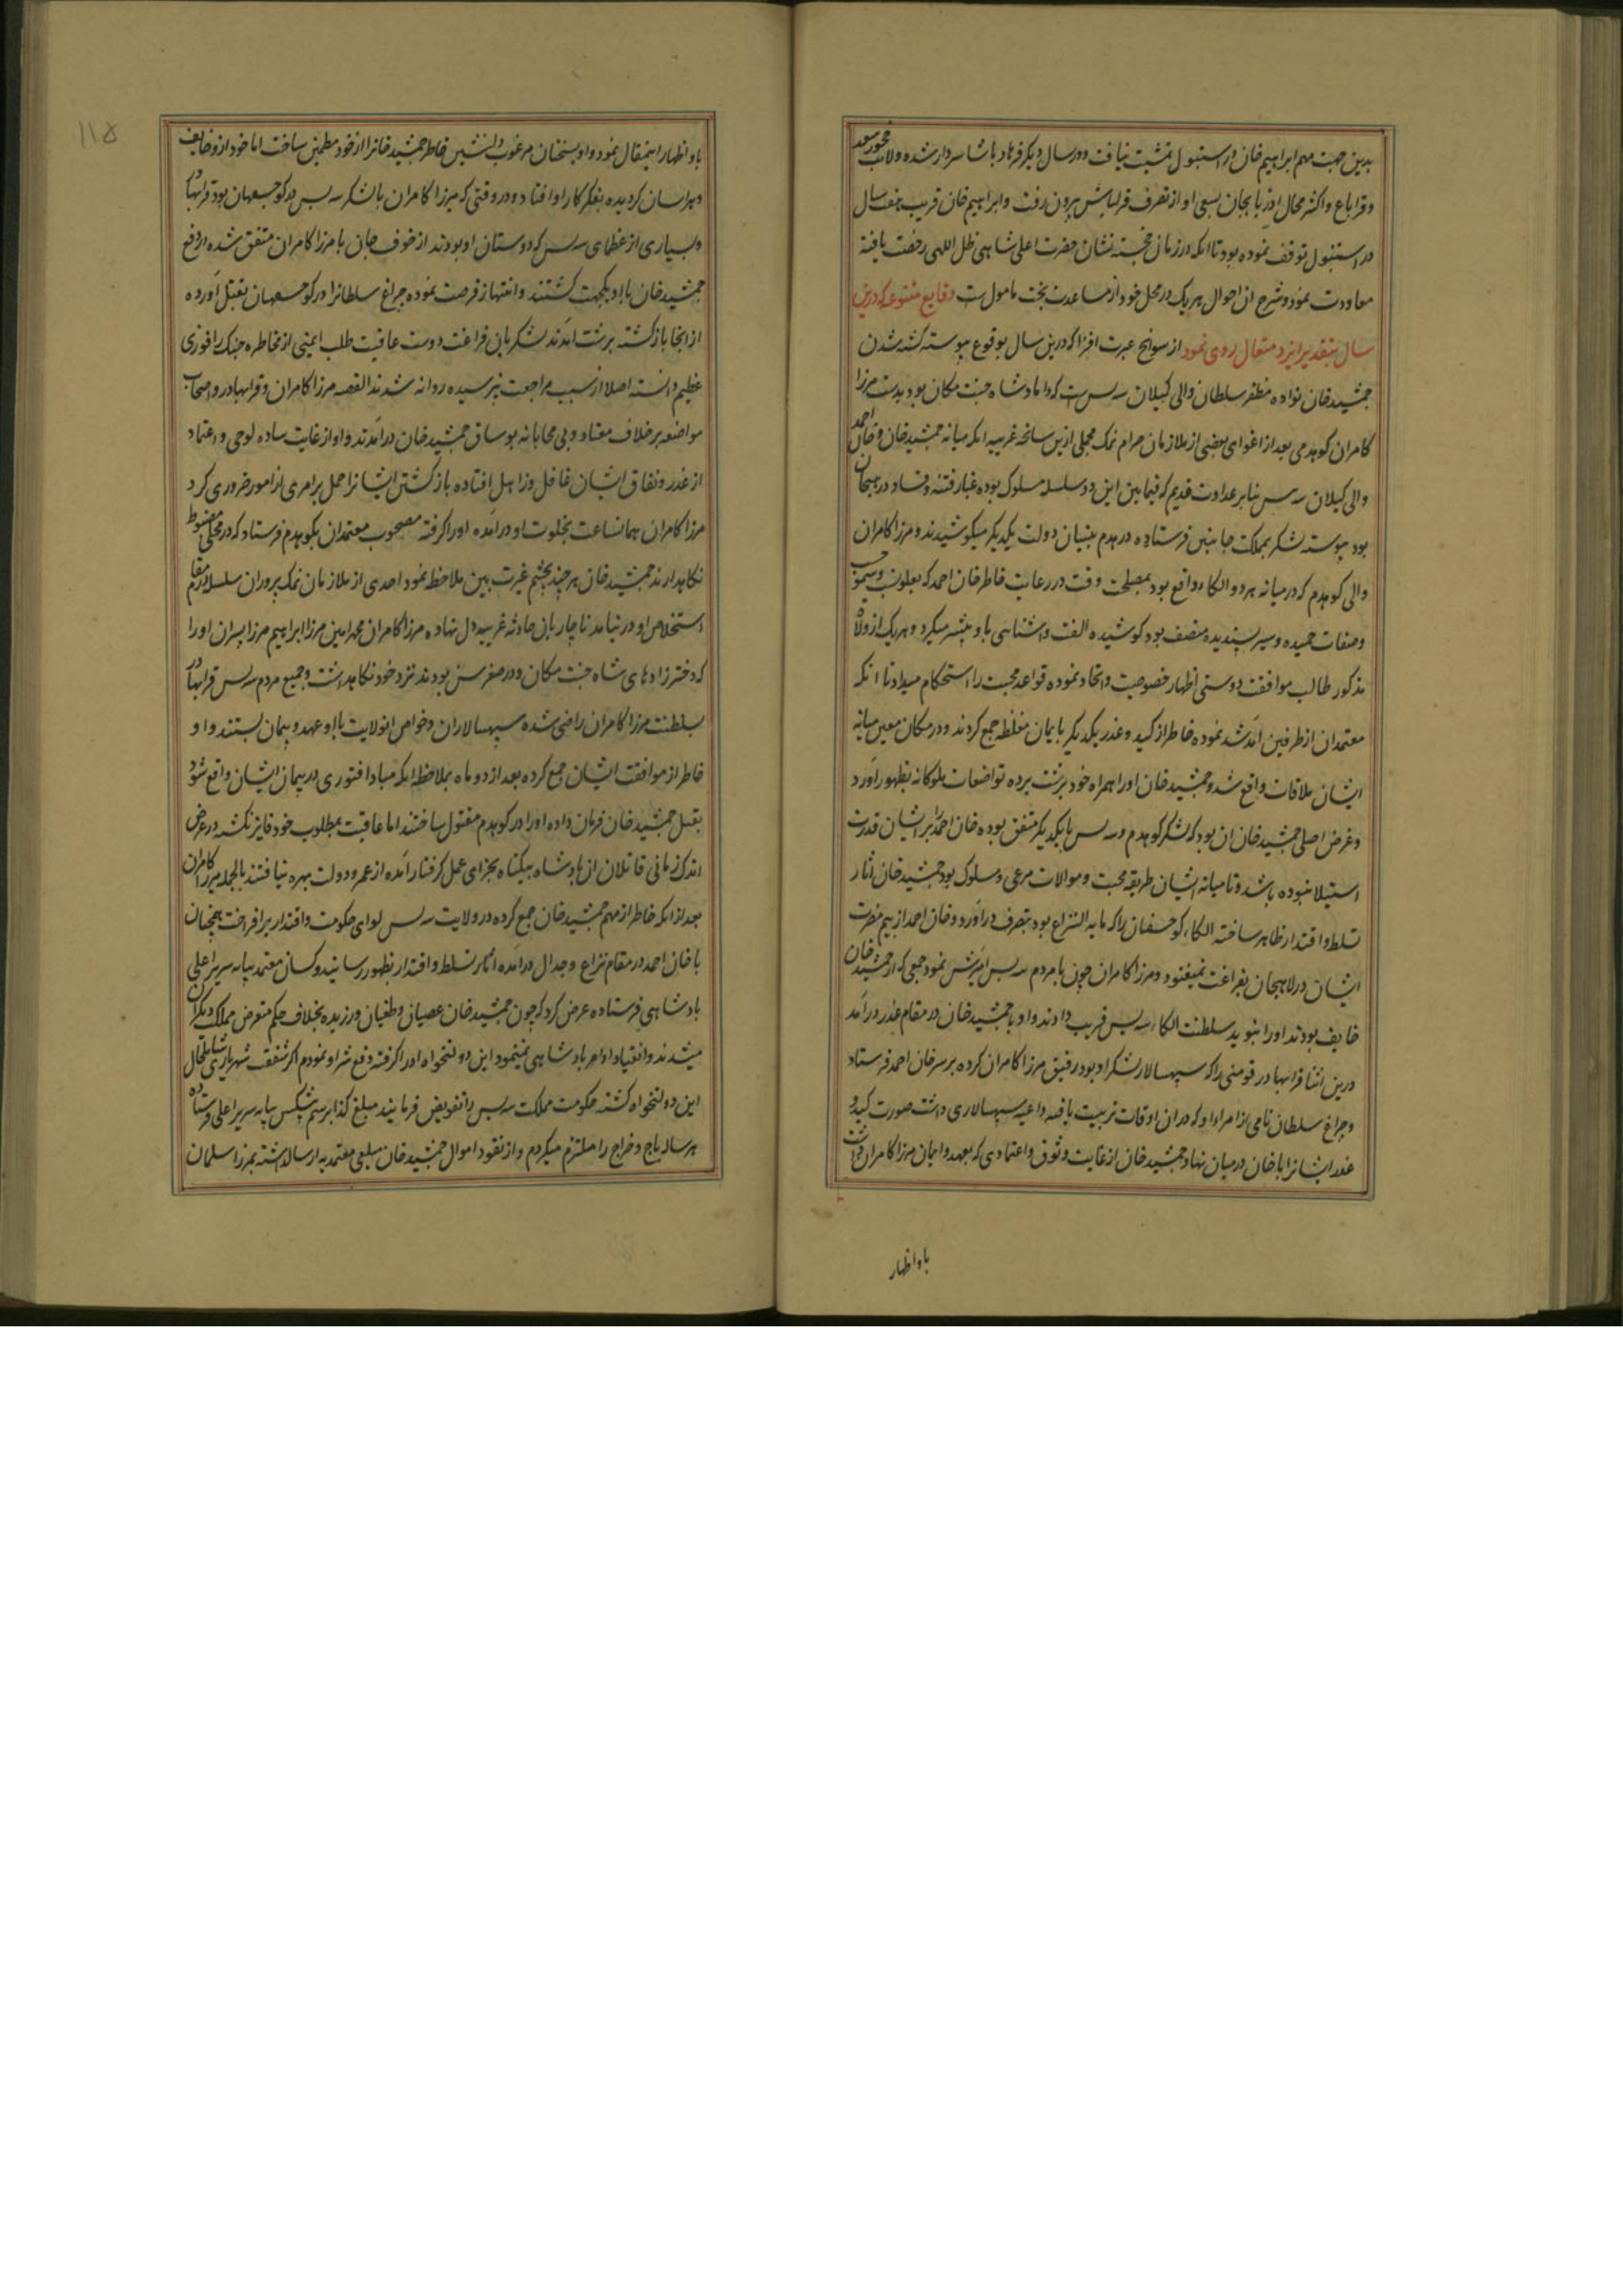 بدین جهت مهم ابراهیم خان در استنبول تمشیت نیافت و در سال دیگر فرهاد پاشا سردار شده ولایت
و قراباغ و اکثر محال آذربایجان بسعی او از تصرف قزلباش بیرون رفت و ابراهیم خان قریب هفت سال
در استنبول توقف نموده بود تا آنکه در زمان خجسته نشان حضرت اعلی شاهی ظل اللهی رخصت یافته
معاودت نمود و شرح آن احوال هر یک در محل خود از مساعدت بخت مامول است وقایع متنوعه که درین
سال بتقدیر ایزد متعال روی نمود از سوانح عبرت افزا که درین سال بوقوع پیوسته کشته شدن
جمشید خان نواده مظفر سلطان والی گیلان بیه پس است که داماد شاه جنت مکان بود بدست میرزا
کامران کوهدمی بعد از اغوای بعضی از ملازمان حرام نمک مجملی ازین سانحه غریبه آنکه میانه جمشید خان و خان احمد
والی گیلان بیه پس بنابر عداوت قدیم که فیما بین این دو سلسله مسلوک بوده غبار فتنه و فساد در هیجان
بود پیوسته لشکر بمملکت جانبین فرستاده در هدم بنیان دولت یکدیگر میکوشیدند و میرزا کامران
والی کوهدم که در میانه هر دو الکاء واقع بود بمصلحت وقت در رعایت خاطر خان احمد که بعلو نسب
و صفات حمیده و سیر پسندیده متصف بود کوشیده الفت و آشنایی با او بیشتر میکرد و هر یک از ولاة
مذکور طالب موافقت و دوستی اظهار خصوصیت و اتحاد نموده قواعد محبت را استحکام میداد تا آنکه
معتمدان از طرفین آمد شد نموده خاطر از کید و غدر یکدیگر بایمان مغلظه جمع کردند و در مکان معین میانه
ایشان ملاقات واقع شد و جمشید خان او را همراه خود برشت برده تواضعات ملوکانه بظهور آورد
و غرض اصلی جمشید خان آن بود که لشکر کوهدم و بیه پس با یکدیگر متفق بوده خان احمد را بر ایشان قدرت
استیلا نبوده باشد و تا میانه ایشان طریقه محبت و موالات مرعی و مسلوک بود جمشید خان آثار
تسلط و اقتدار ظاهر ساخته الکاء کوچسفان را که مابه النزاع بود بتصرف درآورد و خان احمد از بیم مضرت
ایشان در لاهیجان بفراغت نمیغنود و میرزا کامران چون با مردم بیه پس آمیزش نمود جمعی که از جمشید خان
خایف بودند او را بنوید سلطنت الکاء بیه پس فریب دادند و او با جمشید خان در مقام غدر درآمد
درین اثنا قرابهادر قومنی را که سپهسالار لشکر او بود رفیق میرزا کامران کرده بر سر خان احمد فرستاد
و چراغ سلطان نامی از امراء او که در آن اوقات تربیت یافته داعیه سپهسالاری داشت صورت کید و
غدر ایشانرا با خان در میان نهاد جمشید خان از غایت وثوق و اعتمادی که بعهد و ایمان میرزا کامران داشت
با و اظهار
۱۱۵
با و اظهار اینمقال نمود و او بسخنان مرغوب دلنشین خاطر جمشید خانرا از خود مطمئن ساخت اما خود از و خایف
و هراسان گردیده بفکر کار او افتاد و در وقتی که میرزا کامران با لشکر بیه پس در کوچسفان بود قرابهادر
و بسیاری از عظمای بیه پس که دوستان او بودند از خوف جان با میرزا کامران متفق شده در دفع
جمشید خان با او یکجهت گشتند و انتهاز فرصت نموده چراغ سلطانرا در کوچسفان بقتل آورده
از آنجا بازگشته برشت آمدند لشکریان فراغت دوست عافیت طلب ایمنی از مخاطره جنگ را فوزی
عظیم دانسته اصلا از سبب مراجعت نپرسیده روانه شدند القصه میرزا کامران و قرابهادر و اصحاب
مواضعه بر خلاف معتاد و بی محابانه بوساق جمشید خان درآمدند و او از غایت ساده لوحی و اعتماد
از غدر و نفاق ایشان غافل و ذاهل افتاده بازگشتن ایشانرا حمل بر امری از امور ضروری کرد
میرزا کامران همانساعت بخلوت او درآمده او را گرفته مصحوب معتمدان بکوهدم فرستاد که در محلی مضبوط
نگاهدارند جمشید خان هر چند بچشم غیرت بین ملاحظه نمود احدی از ملازمان نمک پروران سلسله در مقام
استخلاص او در نیامد ناچار بآن حادثه غریبه دل نهاده میرزا کامران محمد امین میرزا ابراهیم میرزا پسران او را
که دختر زادهای شاه جنت مکان و در صغر سن بودند نزد خود نگاهداشت و جمیع مردم بیه پس قرابهادر
بسلطنت میرزا کامران راضی شده سپهسالاران و خواص آنولایت با او عهد و پیمان بستند و او
خاطر از موافقت ایشان جمع کرده بعد از دو ماه بملاحظه آنکه مبادا فتوری در پیمان ایشان واقع شود
بقتل جمشید خان فرمان داده او را در کوهدم مقتول ساختند اما عاقبت بمطلوب خود فایز نگشته در عرض
اندک زمانی قاتلان از پادشاه بیگناه بجزای عمل گرفتار آمده از عمر و دولت بهره نیافتند بالجمله میرزا کامران
بعد از آنکه خاطر از مهم جمشید خان جمع کرده در ولایت بیه پس لوای حکومت و اقتدار برافراخت همچنان
با خان احمد در مقام نزاع و جدال درآمده آثار تسلط و اقتدار بظهور رسانید و کسان معتمد بپایه سریر اعلی
پادشاهی فرستاده عرض کرد که چون جمشید خان عصیان و طغیان ورزیده بخلاف حکم متعرض مملکت دیگران
میشدند و انقیاد اوامر پادشاهی نمینمود این دولتخواه او را گرفته دفع شر او نمودم اگر شفقت شهریاری شامل حال
این دولتخواه گشته حکومت مملکت بیه پس را تفویض فرمایند مبلغ کذا برسم پیشکش بپایه سریر اعلی فرستاده
هر ساله باج و خراج را ملتزم میگردم و از نقود اموال جمشید خان مبلغی معتمدبه ارسال داشته بمیرزا سلمان